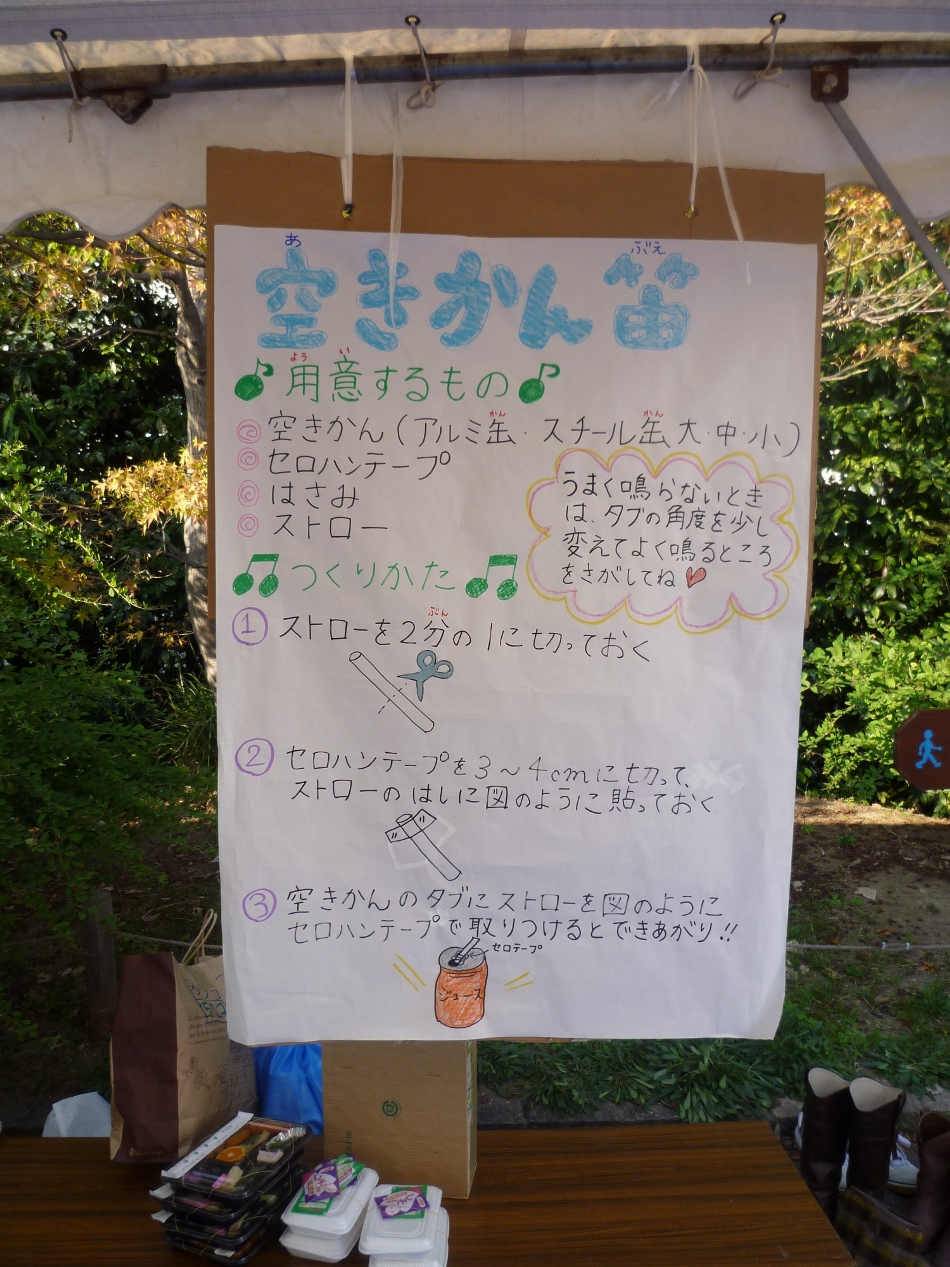 あ ぶえ
空きかん笛
よう い
♪用意するもの♪
かん かん
空きかん(アルミ缶・スチール缶 大・中・小)
セロハンテープ
はさみ
ストロー
うまく鳴らないとき
は、タブの角度を少し
変えてよく鳴るところ
をさがしてね♥
♫つくりかた♫
ぶん
① ストローを2分の1に切っておく
② セロハンテープを3~4cmに切って、
ストローのはしに図のように貼っておく
③ 空きかんのタブにストローを図のように
セロハンテープで取りつけるとできあがり!!
セロテープ
ジュース